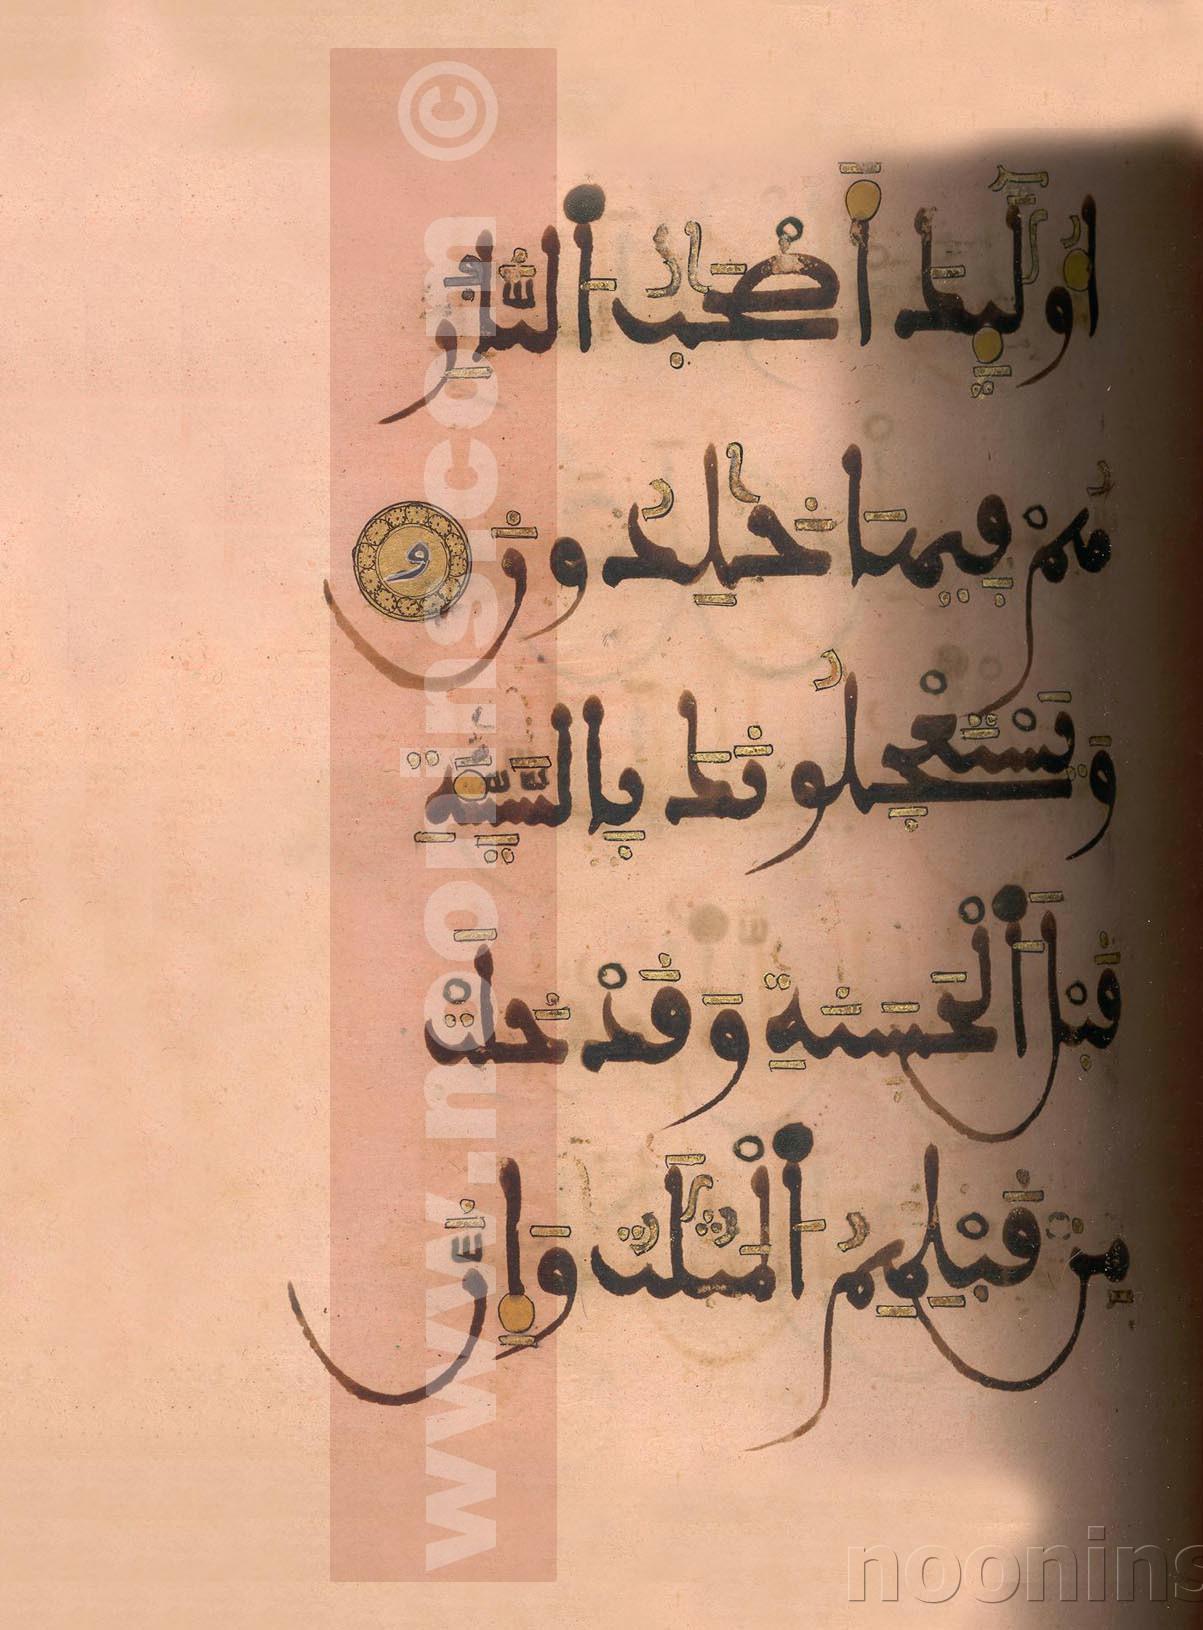 اُوْلَٰٓئِكَ أَصْحَٰبُ اَ۬لنّ۪ارِ
هُمْ فِيهَا خَٰلِدُونَ و
وَيَسْتَعْجِلُونَكَ بِالسَّيِّئَةِ
قَبْلَ اَ۬لْحَسَنَةِ وَقَدْ خَلَتْ
مِن قَبْلِهِمُ اُ۬لْمَثُلَٰتُ وَإِنَّ
www.noonins.com ©
noonins